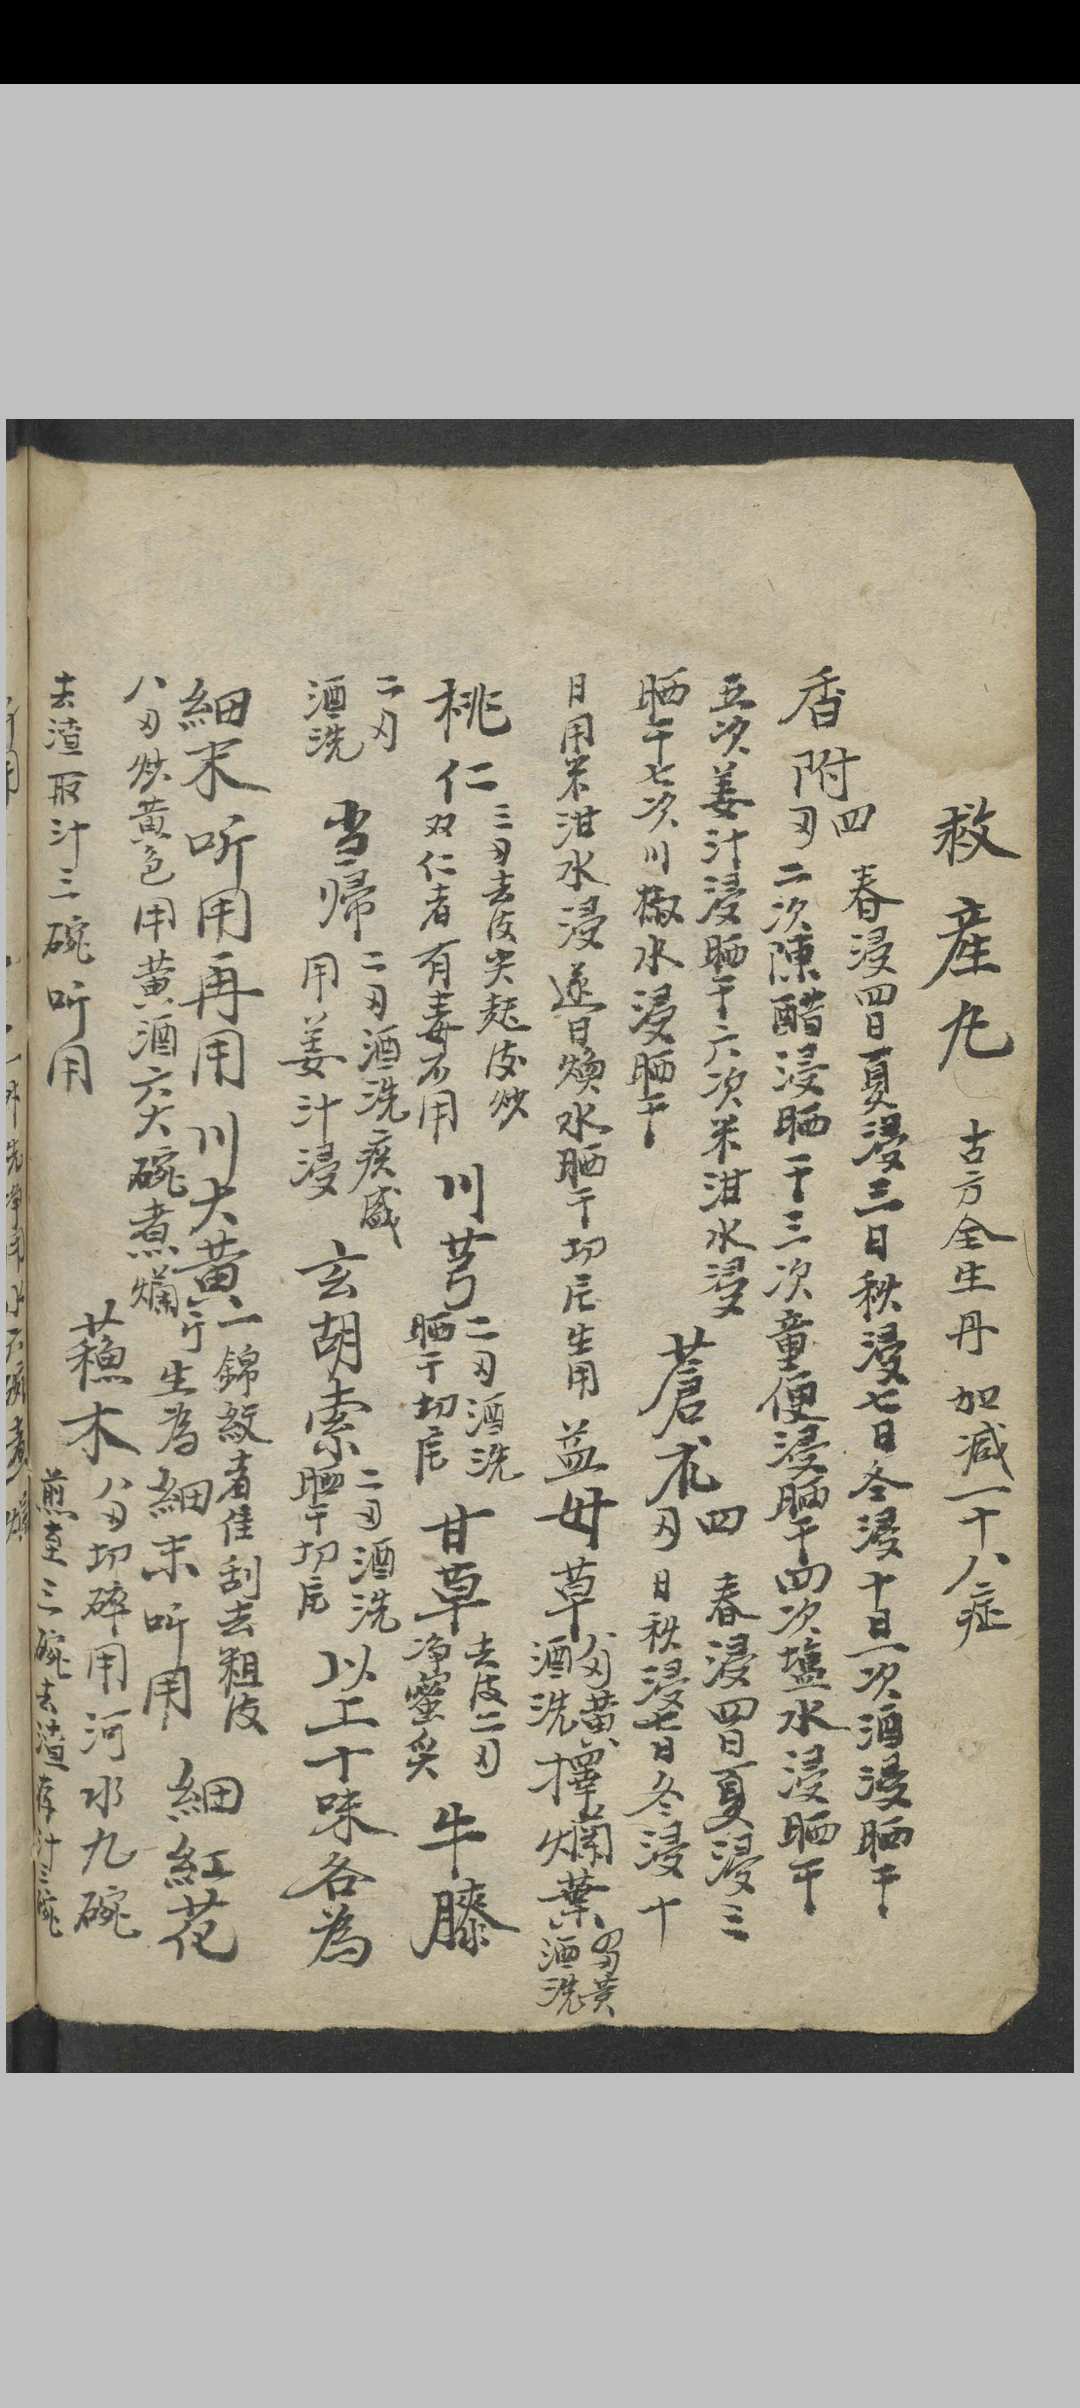 救産丸 古方全生丹 加減一十八症
香附四刄 春浸四日夏浸三日秋浸七日冬浸十日一次酒浸晒干
二次陳醋浸晒干三次童便浸晒干四次塩水浸晒干
五次姜汁浸晒干六次米泔水浸
晒干七次川椒水浸晒干
蒼朮四刄 春浸四日夏浸三
日秋浸七日冬浸十
日用米泔水浸逐日煥水晒干切片生用 益母草 酒洗 擇爛葉 酒洗
桃仁 三刄去皮尖 炒
双仁者有毒不用
川芎 二刄酒洗
晒干切片
甘草 去皮二刄
净蜜炙
牛膝
二刄
酒洗
当歸 二刄酒洗痰盛
用姜汁浸
玄胡索 二刄酒洗
晒干切片
以上十味各為
細末听用再用川大黄一斤 錦紋者佳刮去粗皮
生為細末听用 細紅花
八刄炒黄色用黄酒六大碗煮爛
去渣取汁三碗听用
蘓木 八刄切碎用河水九碗
煎至三碗去渣存汁三碗